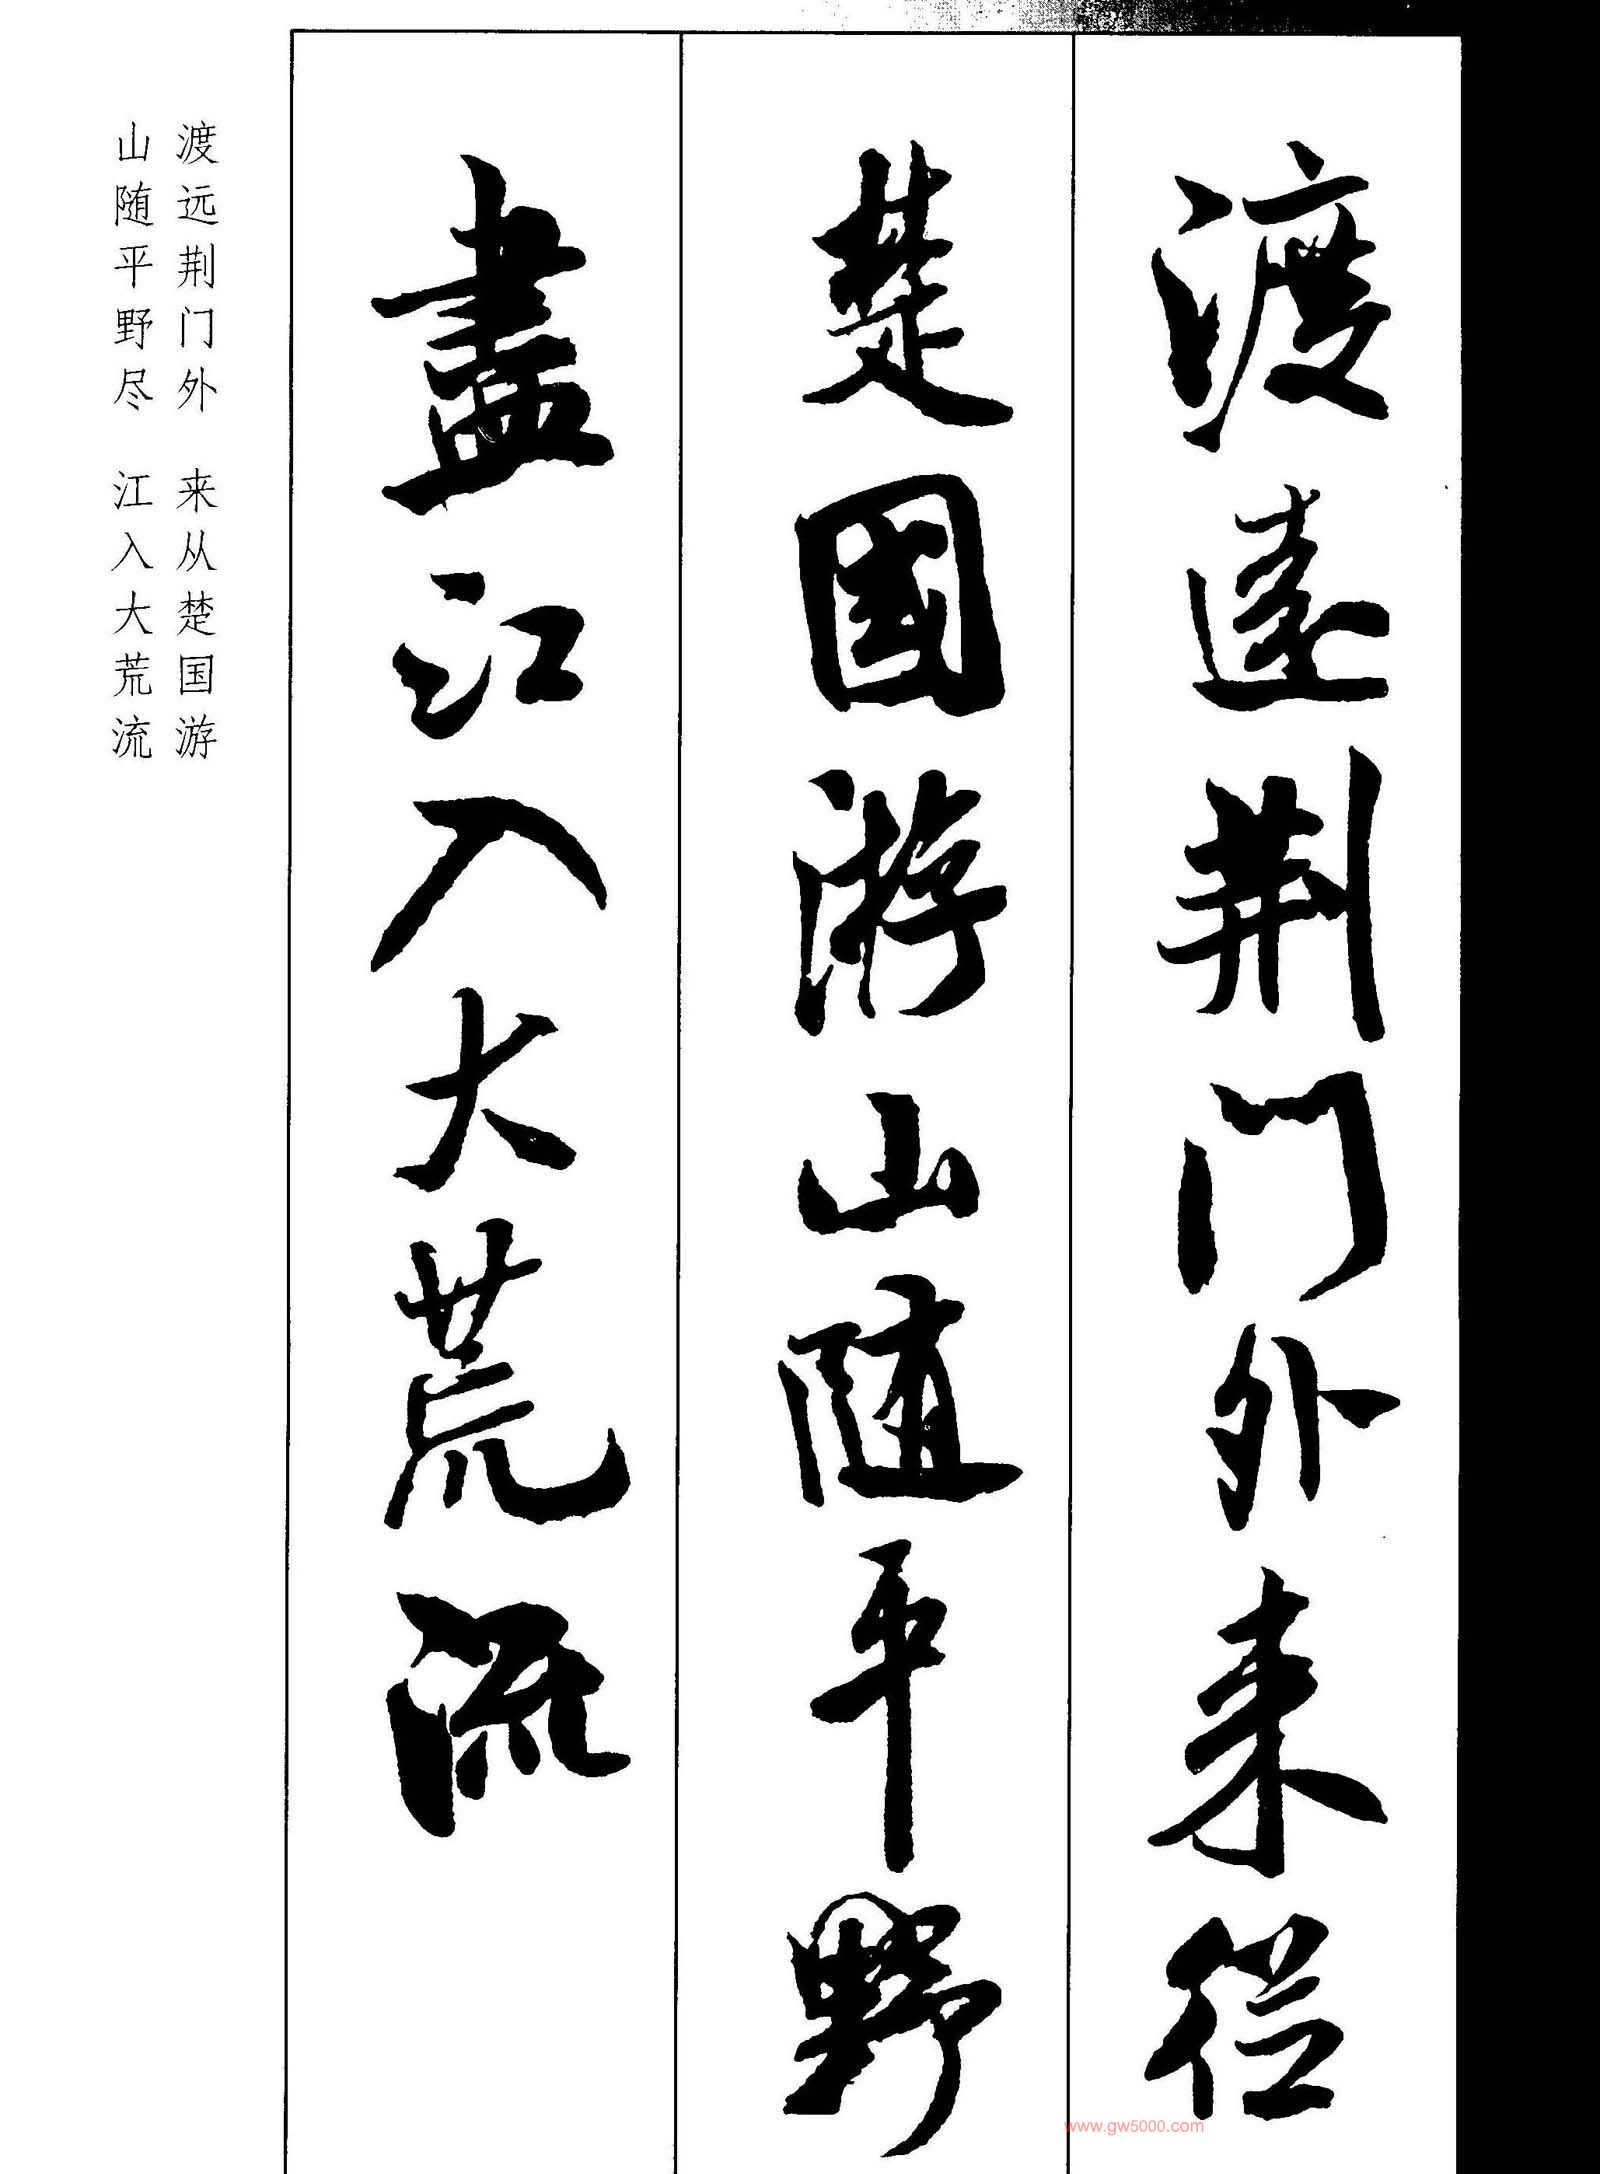 渡遠荆门外来從
楚國游山随平野
盡江入大荒流
渡远荆门外 来从楚国游
山随平野尽 江入大荒流
www.gw5000.com